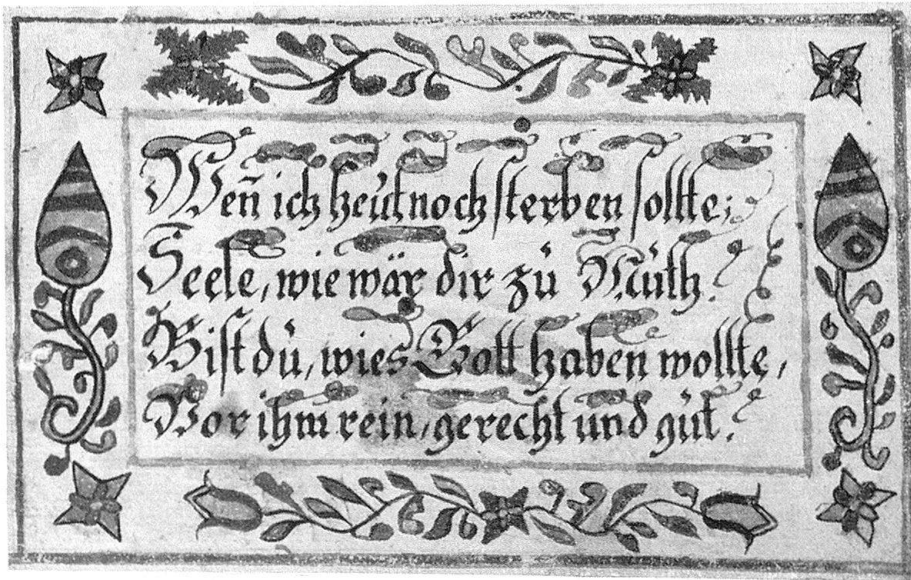 Wen̄ ich heut noch sterben sollte;
Seele, wie wär dir zu Muth?
Bist du, wies Gott haben wollte,
Vor ihm rein, gerecht und gut?